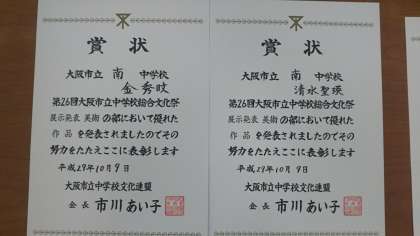 賞状
大阪市立 南 中学校
金秀旼
第26回大阪市立中学校総合文化祭
展示発表 美術 の部において優れた
作品 を発表されましたのでその
努力をたたえここに表彰します
平成29年10月9日
大阪市立中学校文化連盟
会長 市川あい子
賞状
大阪市立 南 中学校
清水聖瑛
第26回大阪市立中学校総合文化祭
展示発表 美術 の部において優れた
作品 を発表されましたのでその
努力をたたえここに表彰します
平成29年10月9日
大阪市立中学校文化連盟
会長 市川あい子